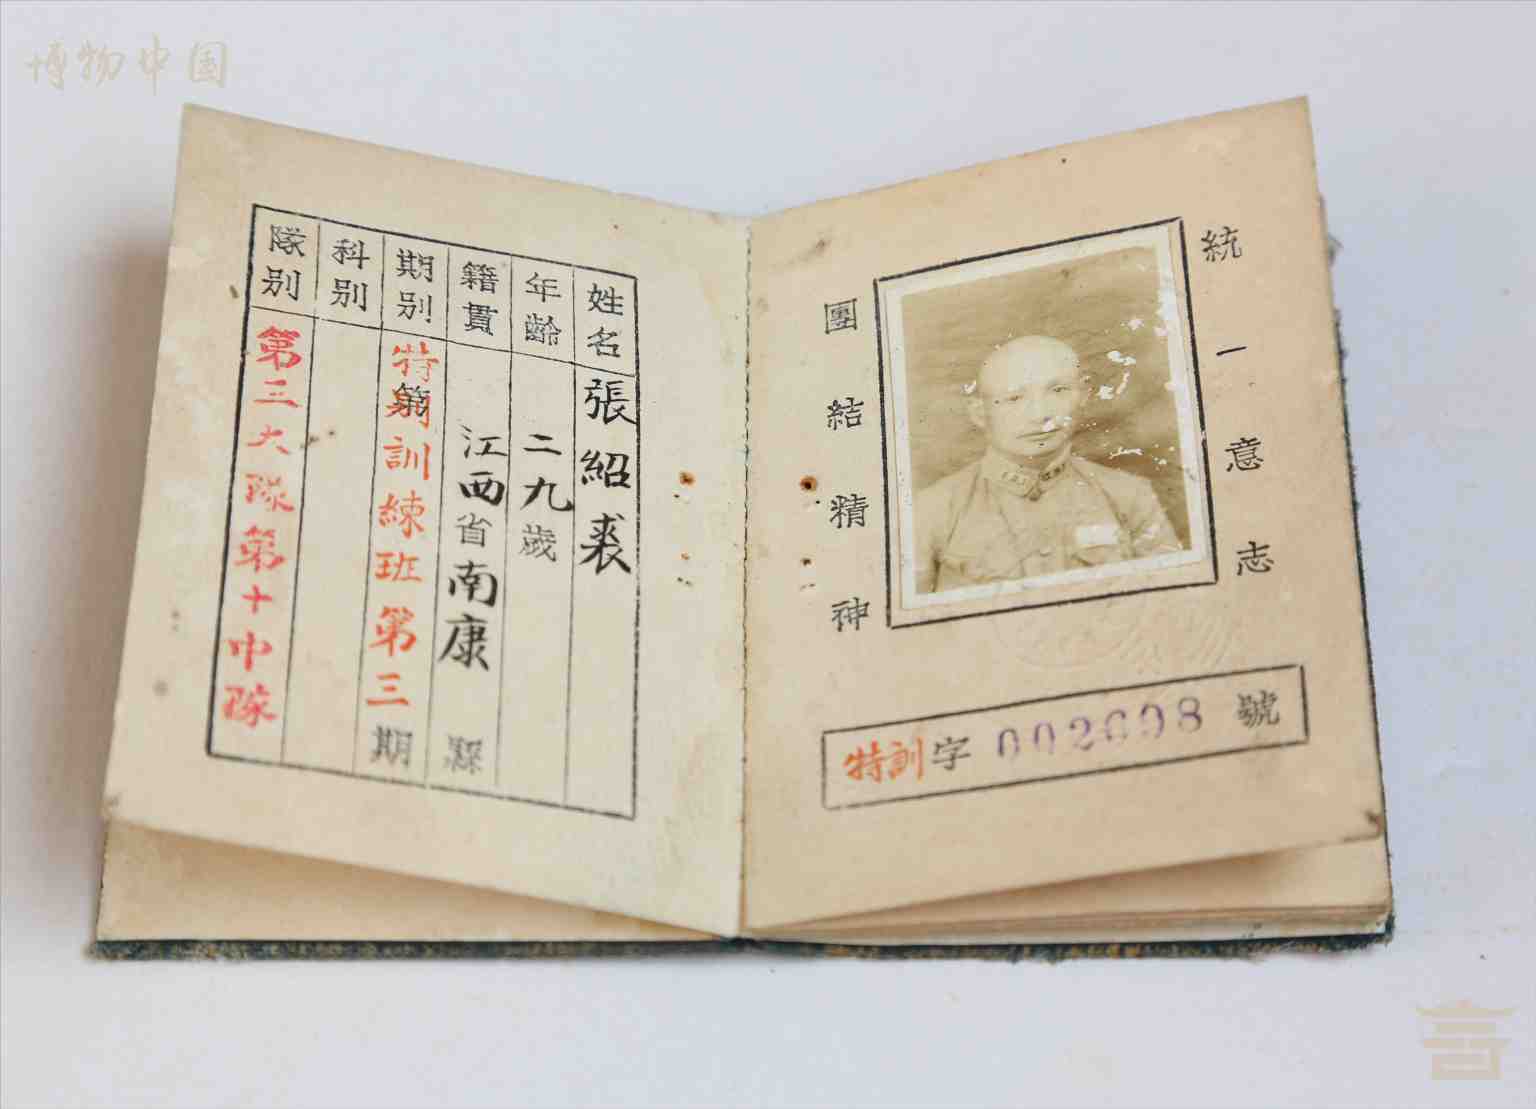 博物中国
統一意志
團結精神
特訓字 002698 號
姓名 張紹裘
年齡 二九歲
籍貫 江西省南康縣
期別 特別訓練班第三期
科別
隊別 第三大隊第十中隊